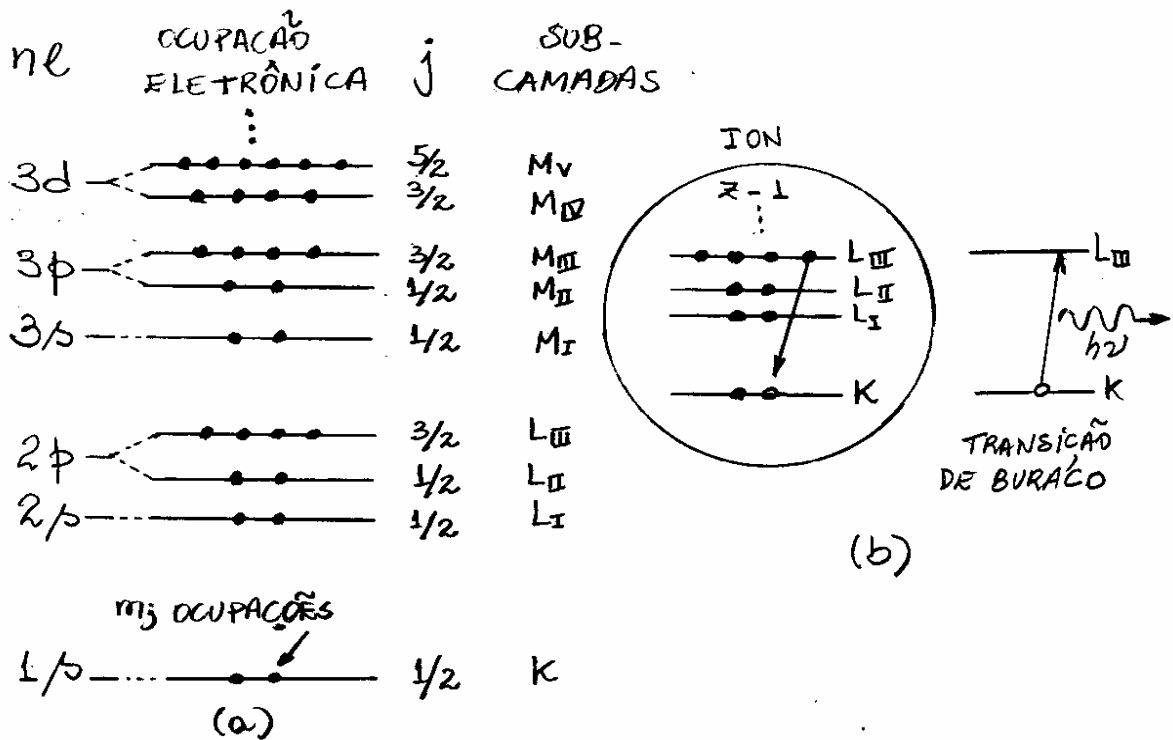 nl OCUPAÇÃO ELETRÔNICA j SUB-CAMADAS
3d 5/2 MV
3/2 MIV
3p 3/2 MIII
1/2 MII
3s 1/2 MI
2p 3/2 LIII
1/2 LII
2s 1/2 LI
mj OCUPAÇÕES
1s 1/2 K
(a)
ION
Z-1
LIII
LII
LI
K
LIII
hν
K
TRANSIÇÃO
DE BURACO
(b)